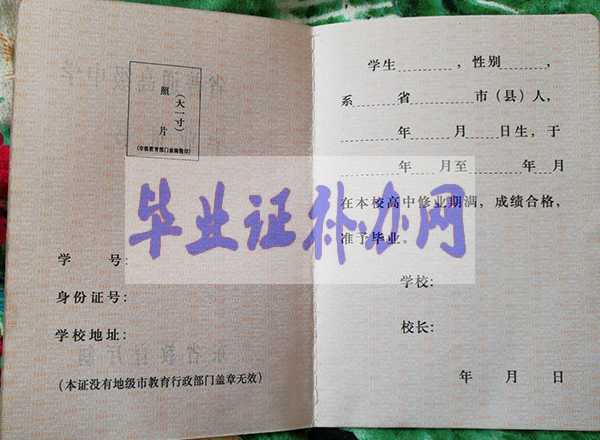 照
片
(大一寸)
(市级教育部门盖钢印)
学 号:
身份证号:
学校地址:
(本证没有地级市教育行政部门盖章无效)
学生 ,性别 ,
系 省 市(县)人,
年 月 日生,于
年 月至 年 月
在本校高中修业期满,成绩合格,
准予毕业。
学校:
校长:
年 月 日
毕业证补办网